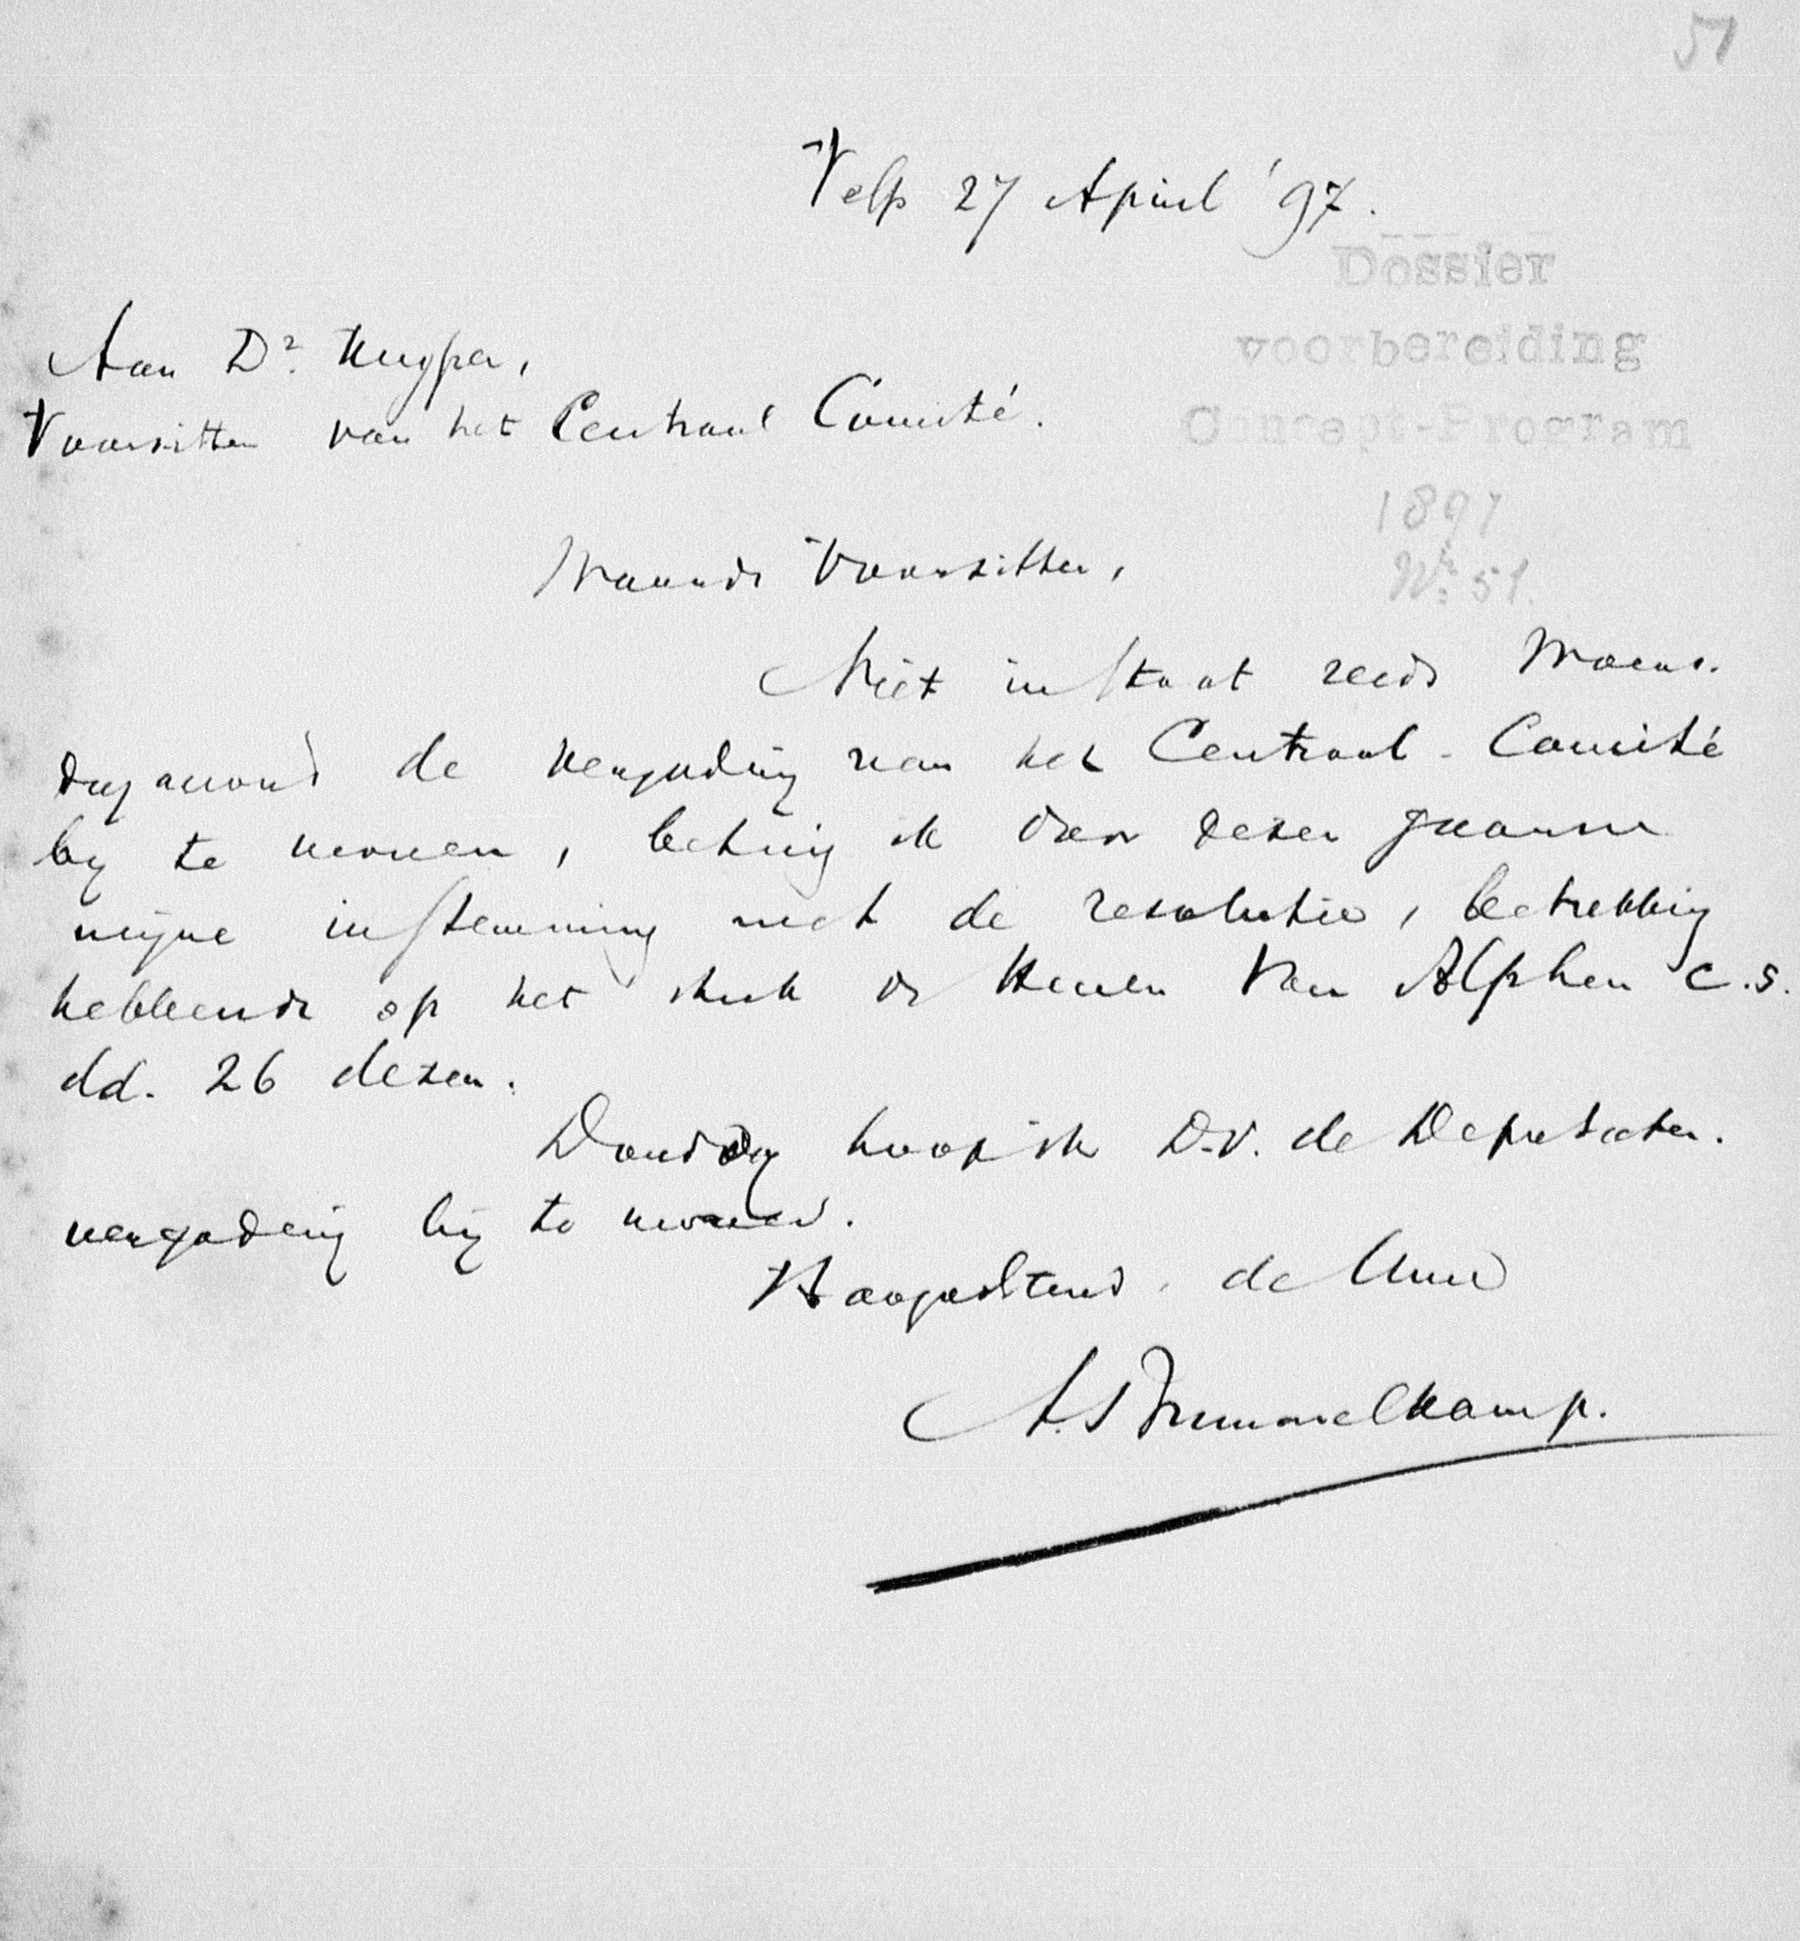 51
Velp 27 April '97.
Dossier
voorbereiding
Concept-Program
1897
No. 51.
Aan Dr. Kuyper,
Voorzitter van het Centraal Comité.
Waarde Voorzitter,
Niet in staat reeds Woens-
dag avond de vergadering van het Centraal-Comité
bij te wonen, betuig ik door dezen gaarne
mijne instemming met de resolutie, betrekking
hebbende op het stuk der Heeren Van Alphen c.s.
dd. 26 dezer.
Donderdag hoop ik D.V. de Deputaten-
vergadering bij te wonen.
Hoogachtend, de Uwe
A. Brummelkamp.